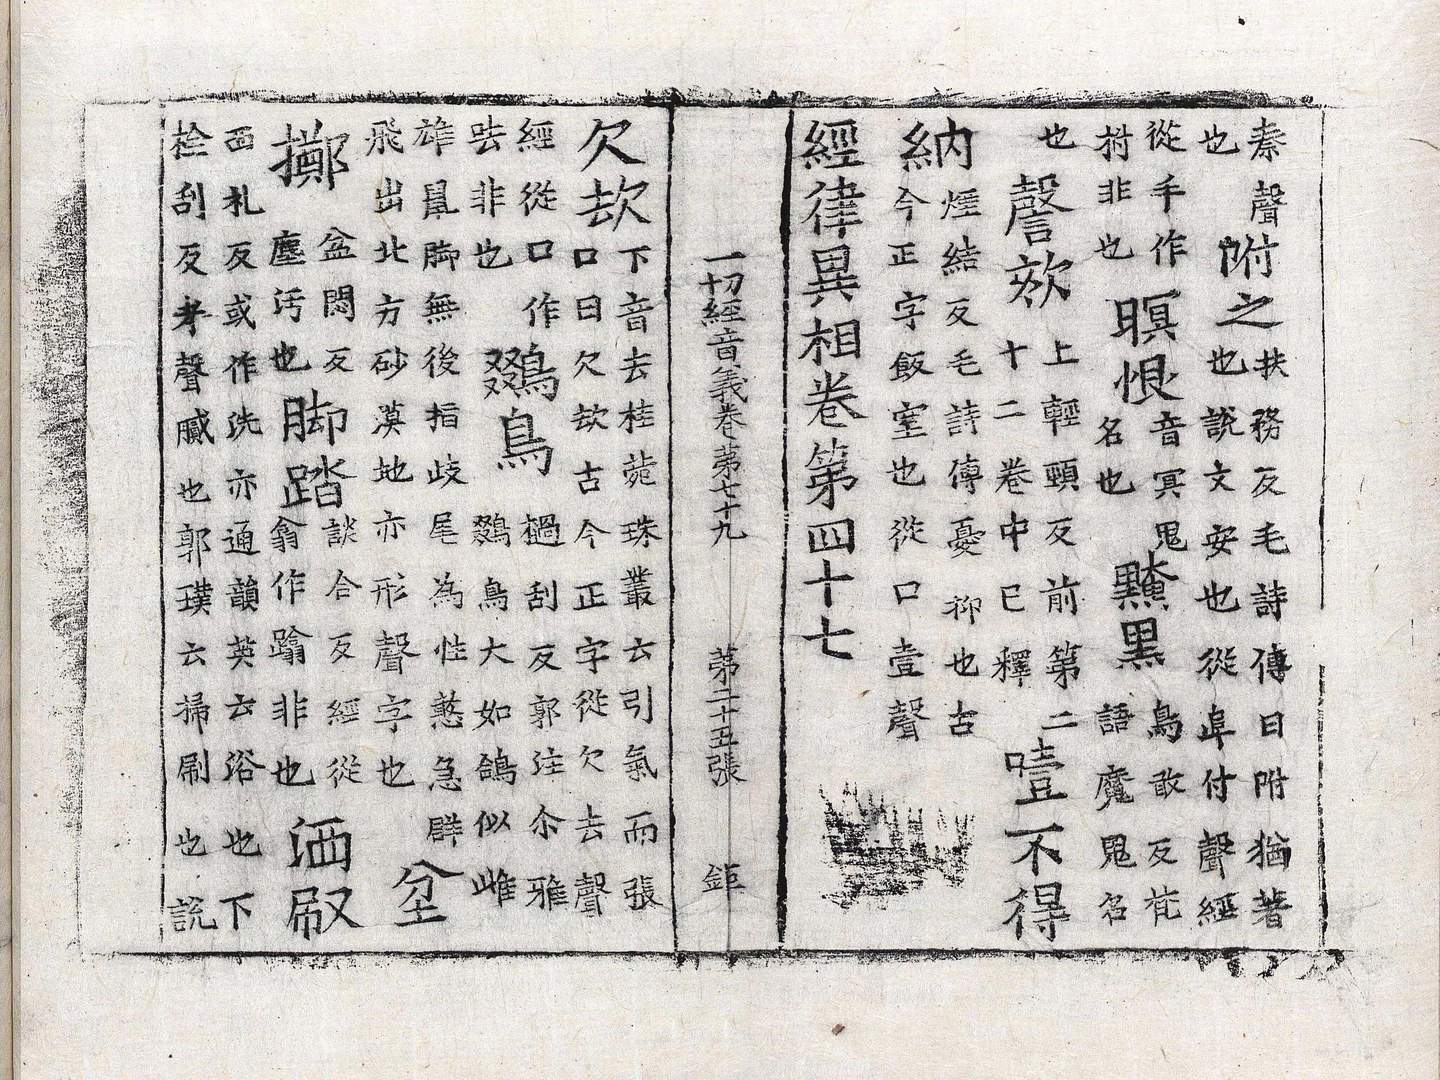 秦聲
也
附之
扶務反毛詩傳曰附猶著
也說文安也從阜付聲經
從手作
拊非也
暝恨
音冥鬼
名也
黤黑
烏敢反梵
語魔鬼名
也
謦欬
上輕頸反前第二
十二卷中已釋
噎不得
納
煙結反毛詩傳憂抑也古
今正字飯窒也從口壹聲
經律異相卷第四十七
一切經音義卷第七十九 第二十五張 鉅
欠㰦
下音去桂菀珠叢云引氣而張
口曰欠㰦古今正字從欠去聲
經從口作
呿非也
鵽鳥
檛刮反郭注尒雅
鵽鳥大如鴿似雌
雄鼠脚無後指歧尾為性憨急群
飛出北方砂漠地亦形聲字也
坌
擲
盆悶反
塵污也
脚踏
談合反經從
翕作蹹非也
洒刷
西札反或作洗亦通韻英云浴也下
栓刮反考聲膩也郭璞云掃刷也說